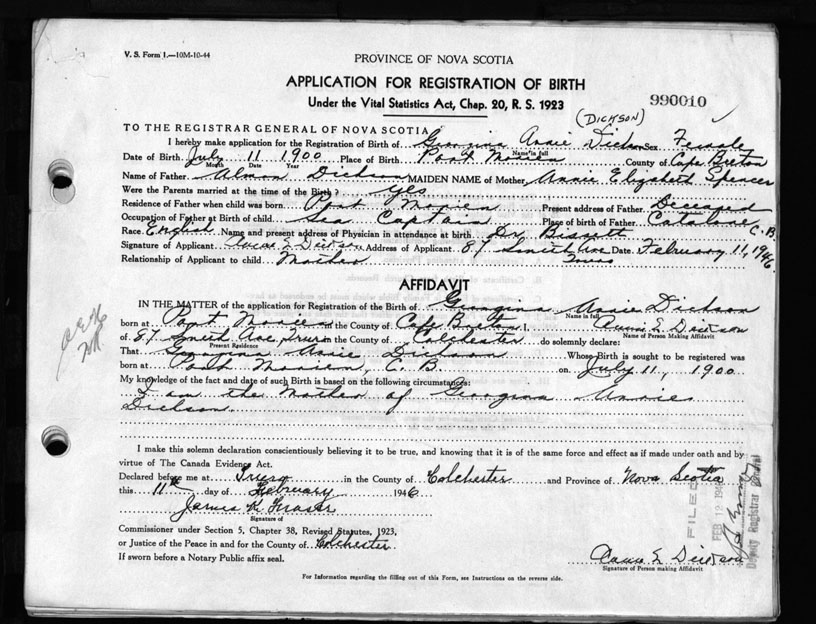 V. S. Form 1.—10M-10-44
PROVINCE OF NOVA SCOTIA
APPLICATION FOR REGISTRATION OF BIRTH
Under the Vital Statistics Act, Chap. 20, R. S. 1923
990010
(DICKSON)
TO THE REGISTRAR GENERAL OF NOVA SCOTIA
I hereby make application for the Registration of Birth of Georgina Annie Dickson Sex Female
Name in full
Date of Birth July 11 1900 Place of Birth Port Morien County of Cape Breton
Month Date Year
Name of Father Almon Dickson MAIDEN NAME of Mother Annie Elizabeth Spencer
Were the Parents married at the time of the Birth? Yes
Residence of Father when child was born Port Morien Present address of Father Deceased
Occupation of Father at Birth of child Sea Captain Place of birth of Father Catalone C.B.
Race English Name and present address of Physician in attendance at birth Dr Bissett
Signature of Applicant Annie E Dickson Address of Applicant 87 Smith Ave Date February 11, 1946
Relationship of Applicant to child Mother Truro
AFFIDAVIT
IN THE MATTER of the application for Registration of the Birth of Georgina Annie Dickson
Name in full
born at Port Morien in the County of Cape Breton I, Annie E Dickson
Name of Person making Affidavit
of 87 Smith Ave, Truro in the County of Colchester do solemnly declare:
Present Residence
That Georgina Annie Dickson Whose Birth is sought to be registered was
born at Port Morien, C. B. on July 11, 1900
My knowledge of the fact and date of such Birth is based on the following circumstances:
I am the Mother of Georgina Annie
Dickson.
I make this solemn declaration conscientiously believing it to be true, and knowing that it is of the same force and effect as if made under oath and by
virtue of The Canada Evidence Act.
Declared before me at Truro in the County of Colchester and Province of Nova Scotia
this 11th day of February 1946
James K Fraser
Signature of
Commissioner under Section 5, Chapter 38, Revised Statutes, 1923,
or Justice of the Peace in and for the County of Colchester
If sworn before a Notary Public affix seal.
Annie E Dickson
Signature of Person making Affidavit
FILED
FEB 12 1946
Deputy Registrar General
For Information regarding the filling out of this Form, see Instructions on the reverse side.